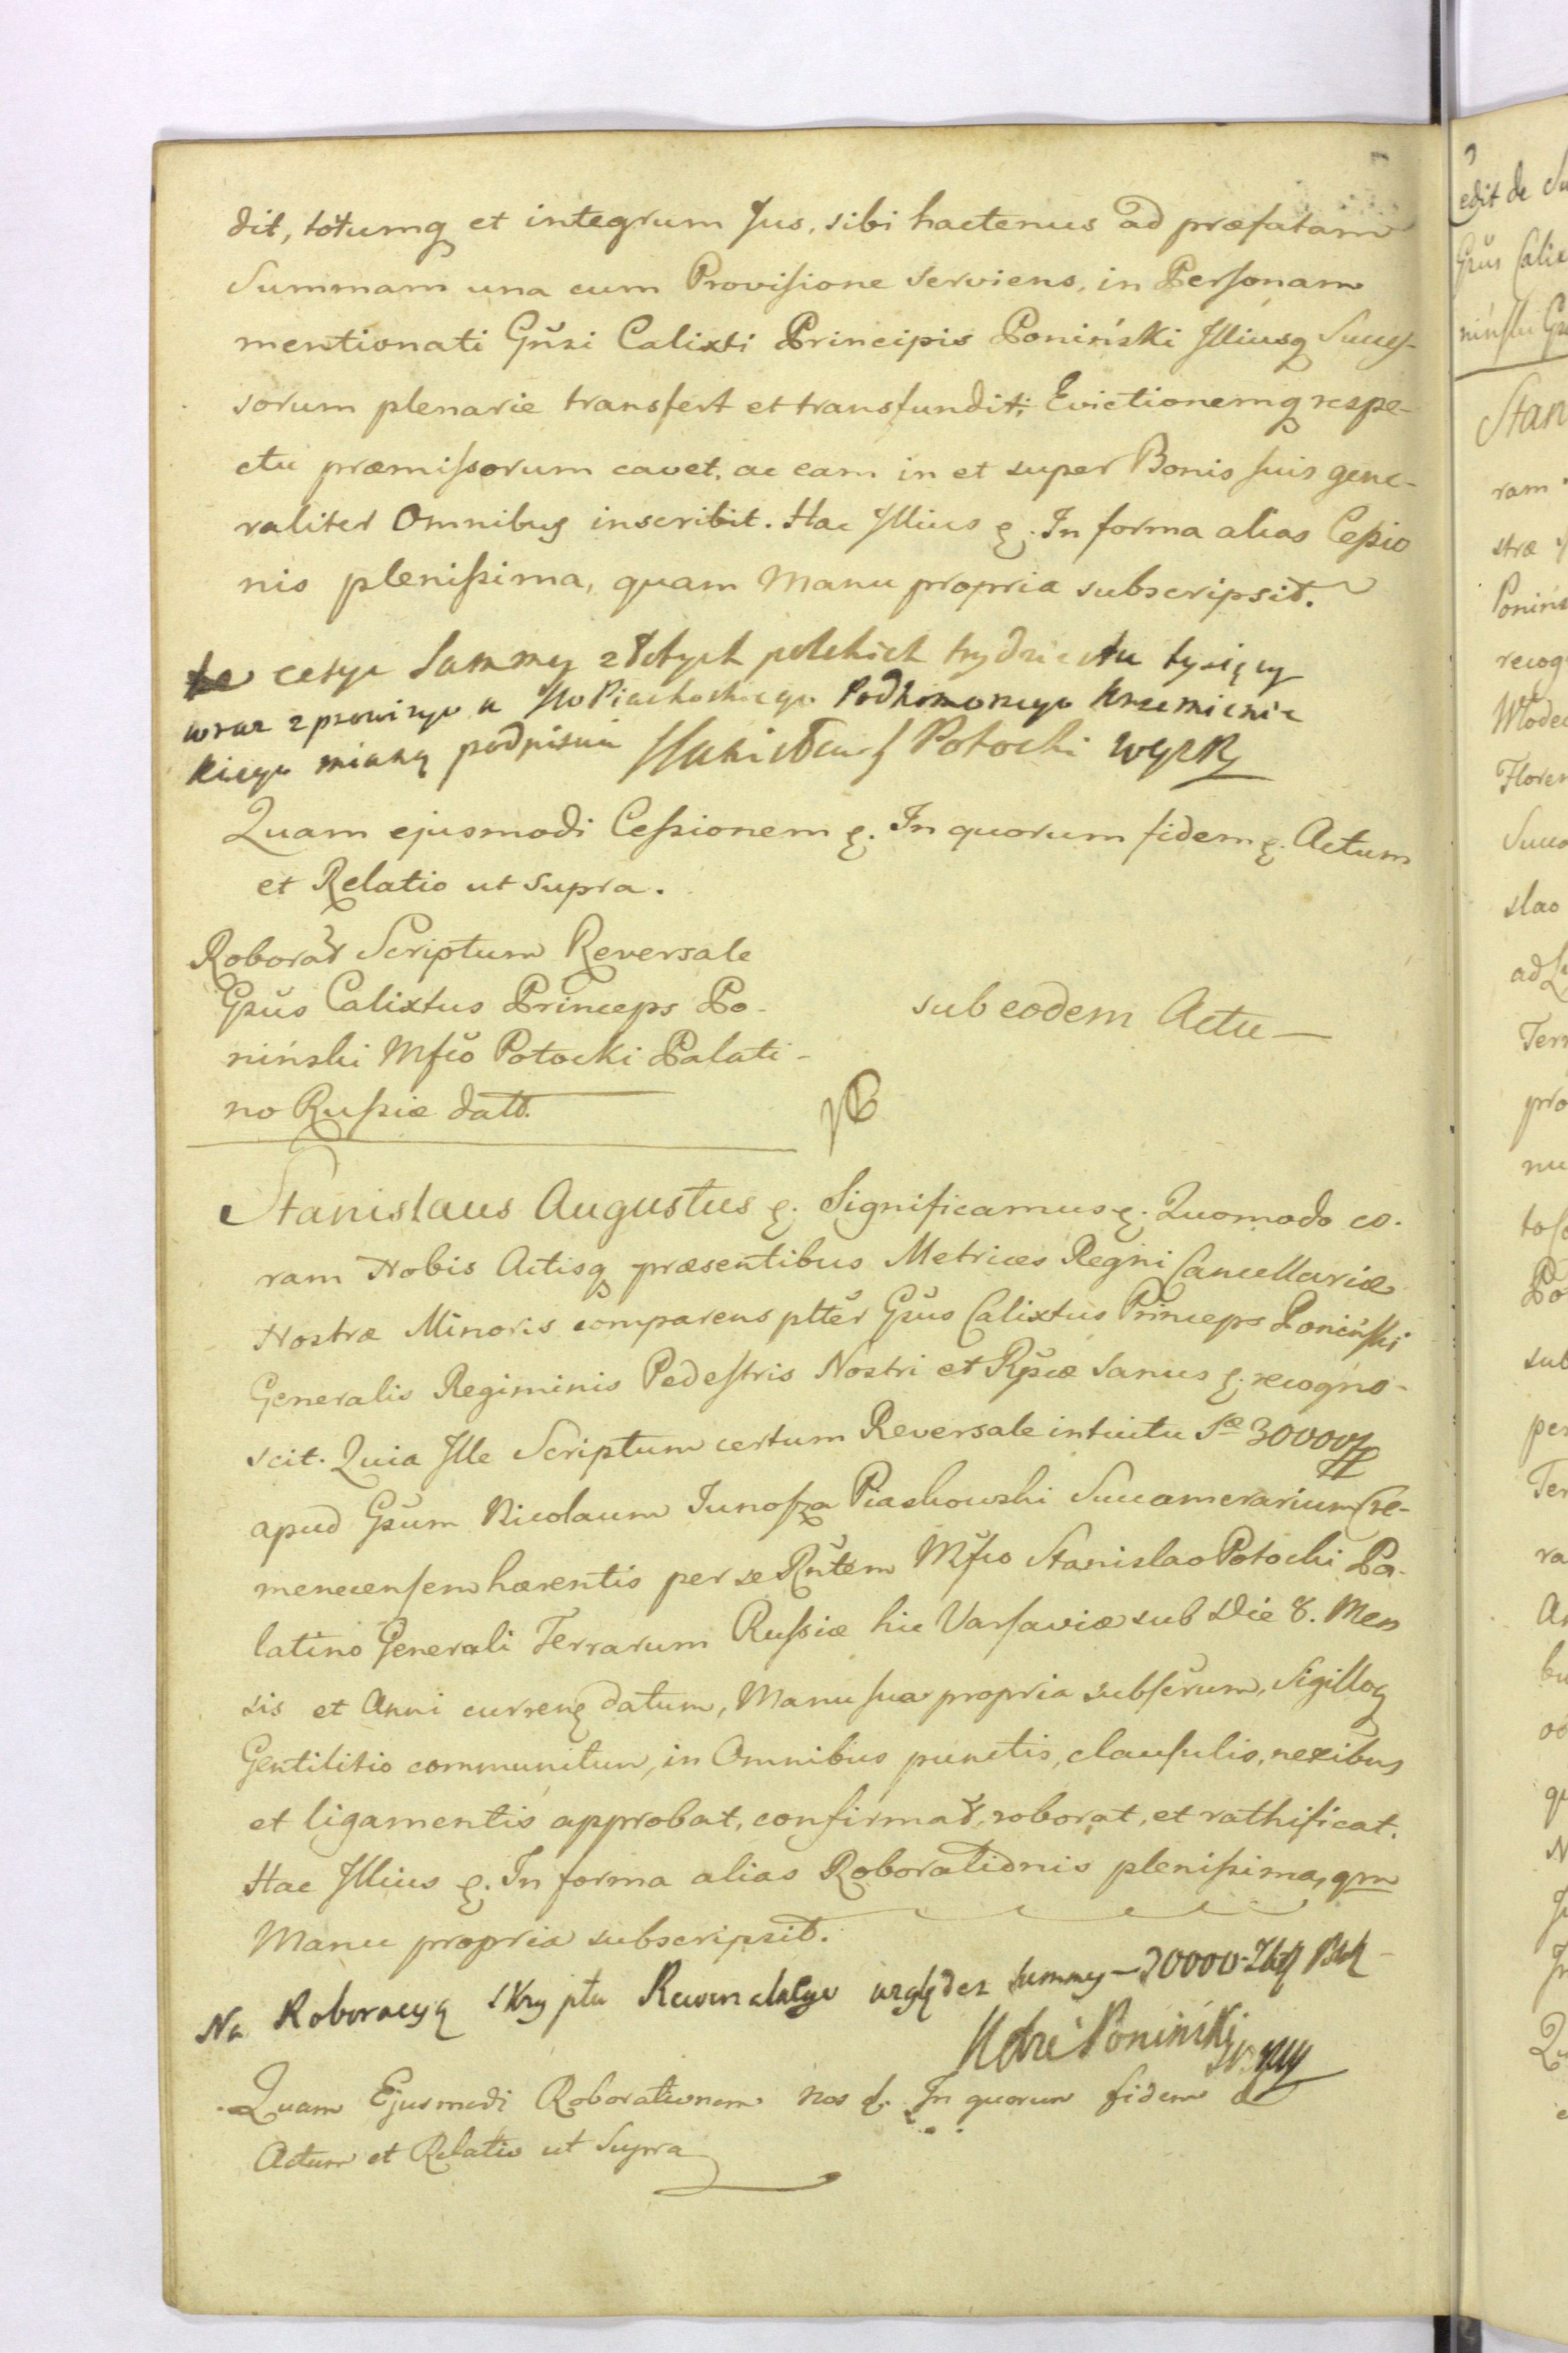 dit, totumq et integrum Jus, sibi hactenus ad præfatam
Summam una cum Provisione serviens, in Personam
mentionati Gnŭsi Calixti Principis Poniński Illiusq Succes-
sorum plenarie transfert et transfundit; Evictionemq respe-
ctu præmissorum cavet, ac eam in et super Bonis suis gene-
raliter Omnibus inscribit. Hac Illius &. In forma alias Cessio
nis plenissima, quam Manu propria subscripsit.
te cesye Summy złotych polskich trydziestu tysięcy
wraz z prowizyo u Piaskoskiego Podkomorzego Krzemienic
kiego mianą podpisuie Stanisław Potocki WZR
Quam ejusmodi Cessionem &. In quorum fidem &. Actum
et Relatio ut supra.
Roborat Scriptum Reversale
Gsŭs Calixtus Princeps Po-
niński Mfco Potocki Palati-
no Russiæ datt.
sub eodem Actu —
Stanislaus Augustus &. Significamus &. Quomodo co-
ram Nobis Actisq præsentibus Metrices Regni Cancellariæ
Nostræ Minoris comparens pltĕr Gsŭs Calixtus Princeps Poniński
Generalis Regiminis Pedestris Nostri et Rpcæ sanus &. recogno-
scit. Quia Ille Scriptum certum Reversale intuitu Sæ 30000
apud Gsŭm Nicolaum Junosza Piaskowski Succamerarium Cre-
menecensem hærentis per se Rñtem Mfco Stanislao Potocki Pa-
latino Generali Terrarum Russiæ hic Varsaviæ sub Die 8. Men
sis et Anni curren datum, Manu sua propria subscrum, Sigilloq
Gentilitio communitum, in Omnibus punctis, clausulis, nexibus
et ligamentis approbat, confirmat, roborat, et rathificat.
Hac Illius &. In forma alias Roborationis plenissima, qm
Manu propria subscripsit.
Na Roboracyą skryptu Rewersalnego względem summy — 30000
Poniński
Quam Ejusmodi Roborationem nos &. In quorum fidem &
Actum et Relatio ut Supra